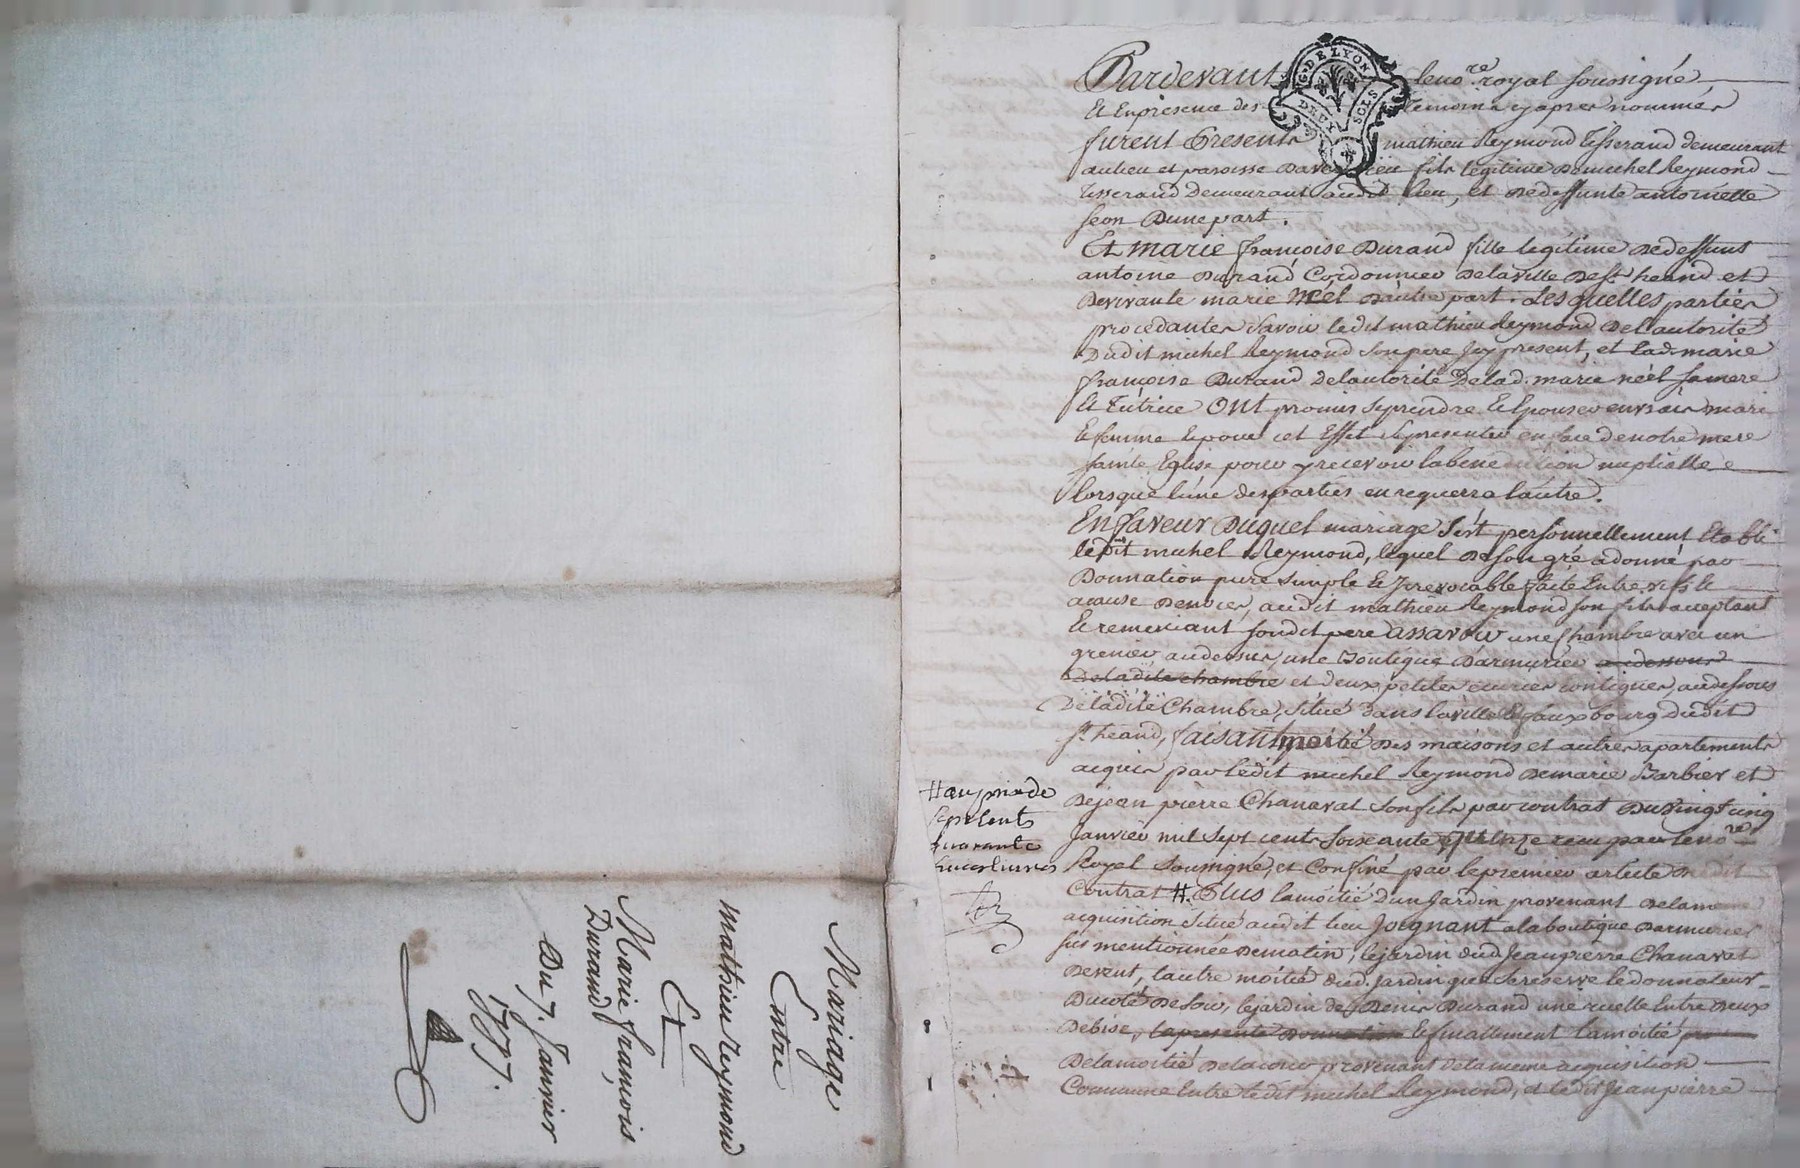 Mariage
Entre
Mathieu Reymond
Et
Marie françois
Durand
Du 7. Janvier
1777.
Pardevant le no.re royal soussigné
Et En presence des temoins cy apres nommés
furent Presents mathieu Reymond tisserand demeurant
au lieu et paroisse fils legitime De michel Reymond
tisserand Demeurant audit lieu, et De deffunte antoinette
feon D'une part.
Et marie françoise Durand fille legitime De deffunt
antoine Durand Cordonnier De la ville De St heand et
De vivante marie Néel D'autre part. Les quelles parties
procedantes savoir ledit mathieu Reymond De l'autorité
Dudit michel Reymond son pere Icy present, et lad. marie
françoise Durand De l'autorité De lad. marie néel sa mere
Et Tutrice Ont promis se prendre Et Epouser en vrais mari
Et femme Et pour cet Effet se presenter en face de notre mere
sainte Eglise pour y recevoir la benediction nuptialle
lorsque l'une des parties en requerra l'autre.
En faveur Duquel mariage S'est personnellement Etabli
ledit michel Reymond, lequel De son gré a donné par
Donnation pure simple Et Irrevocable faite Entre vifs Et
a cause De noces, audit mathieu Reymond son fils acceptant
Et remerciant sondit pere assavoir une Chambre avec un
grenier au dessus, une Boutique D'armurier au dessous
De ladite chambre et deux petites ecuries contigues, au dessous
De ladite Chambre, Situé dans la ville Et fauxbourg dudit
St heand, faisant moitié Des maisons et autres apartements
acquis par ledit michel Reymond De marie Barbier et
De jean pierre Chanavat son fils par contrat Du vingt cinq
Janvier mil sept cent soixante quinze recu par le no.re
Royal Soussigné, et Confiné par le premier article Dudit
Contrat #. Plus la moitié d'un Jardin provenant De la meme
acquisition Situé audit lieu Joignant a la boutique D'armurier
sus mentionnée De matin, le jardin dud. Jean pierre Chanavat
De vent, l'autre moitié dud. Jardin que se reserve le donnateur
Du coté De soir, le jardin de Denis Durand une ruelle Entre Deux
De bise, la presente Donnation Et finallement la moitié
De la moitié De la cour provenant De la meme acquisition
Commune Entre ledit michel Reymond, et ledit Jean pierre
# au prix de
sept cents
quarante
livres
G. DE LYON
DEUX SOLS